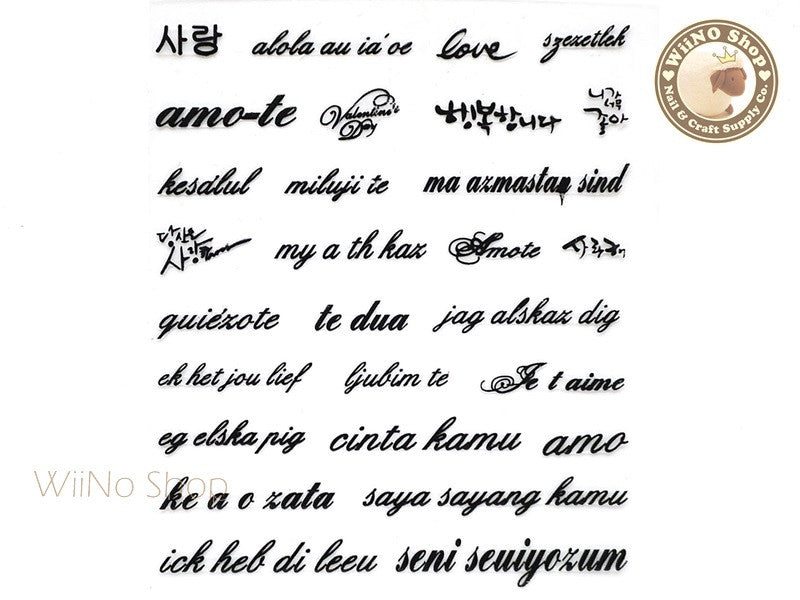 사랑 alola au ia'oe love szezetlek
WiiNO Shop
Nail & Craft Supply Co.
amo-te Valentine's Day 행복합니다 니가 너무 좋아
kesalul miluji te ma azmastan sind
당신을 사랑 my a th kaz Amote 사랑해
quiézote te dua jag alskaz dig
ek het jou lief ljubim te Je t aime
eg elska pig cinta kamu amo
WiiNo Shop
ke a o zata saya sayang kamu
ick heb di leeu seni seuiyozum